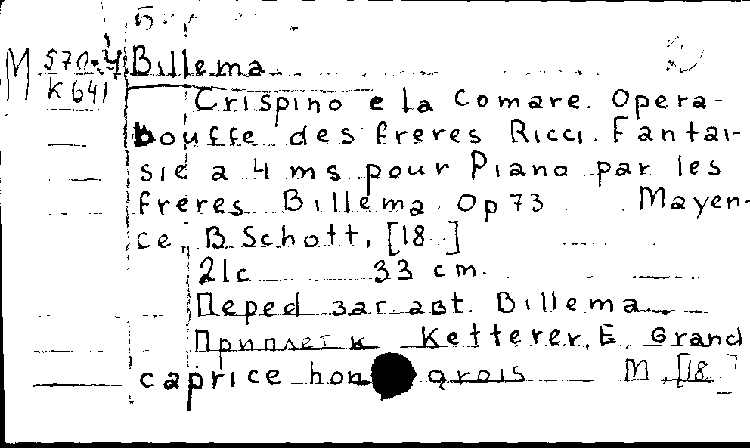 Б
М 570-4 Billema
К 641
Crispino e la Comare. Opera-
bouffe des freres Ricci. Fantai-
sie a 4 ms pour Piano par les
freres Billema. Op 73 Mayen-
ce, B. Schott, [18 ]
21 c 33 cm.
Перед заг. авт. Billema
Приплет к Ketterer, E. Grand
caprice hongrois М, [18 ]